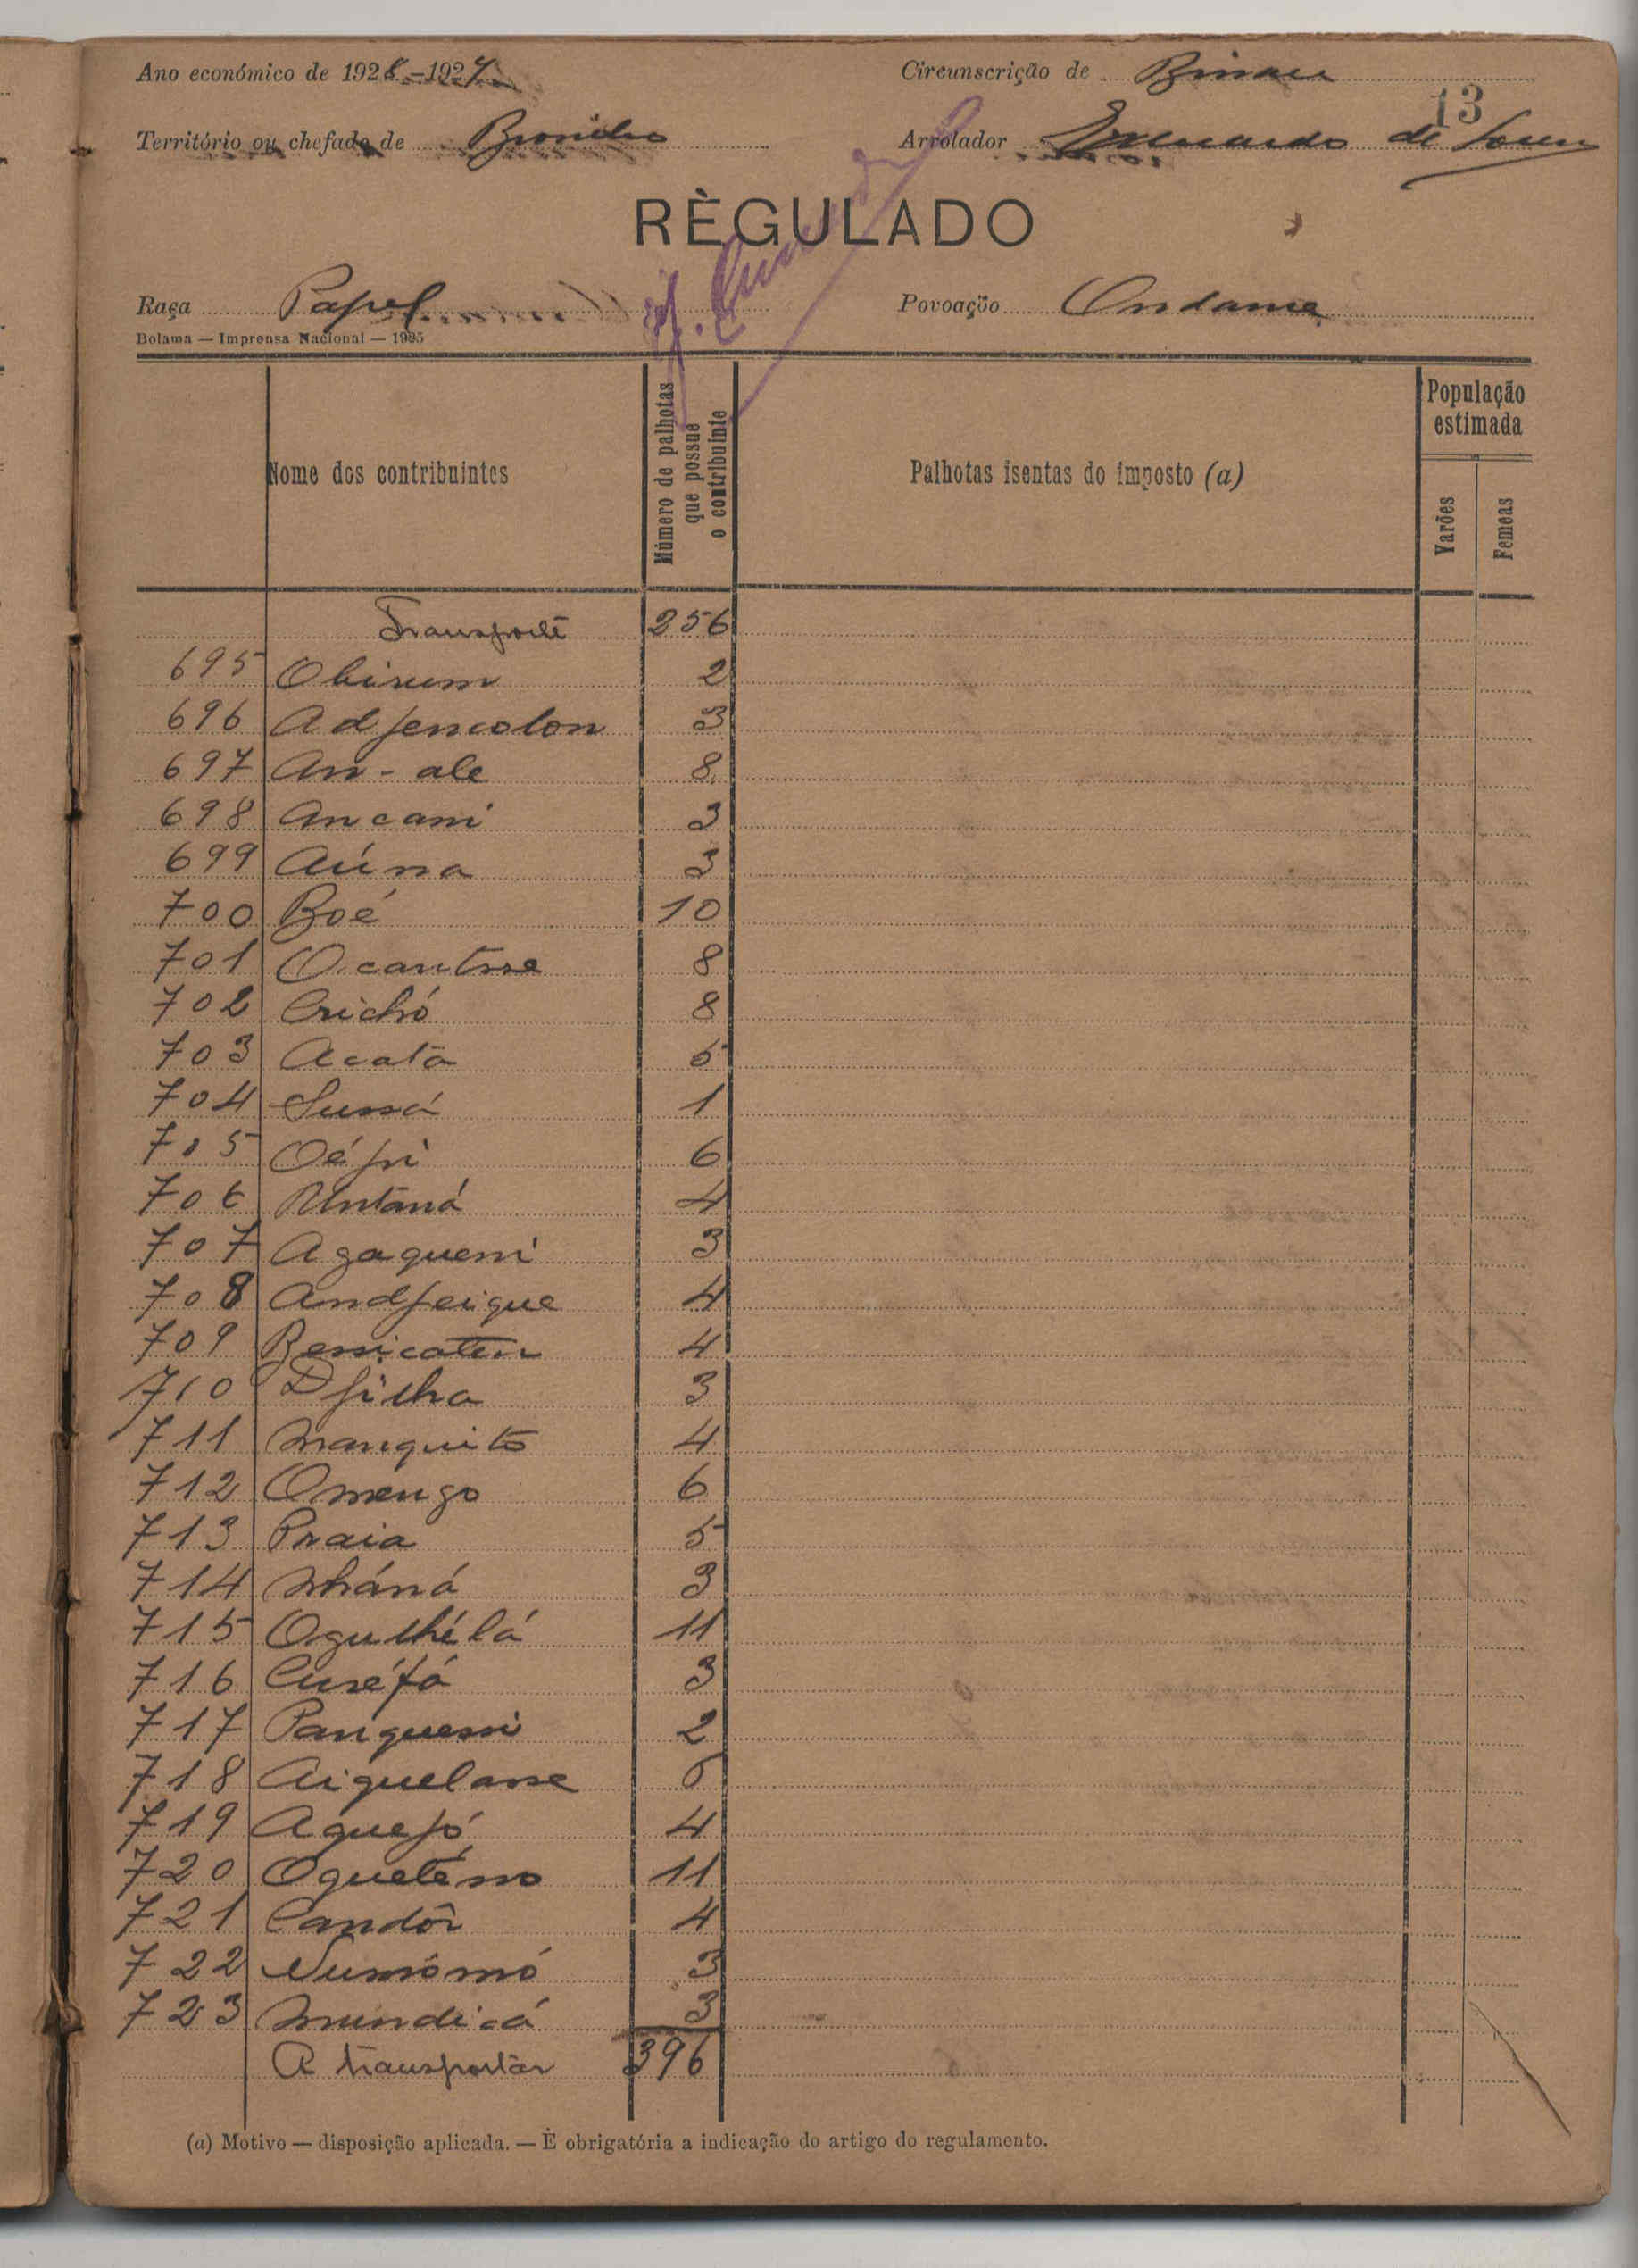 Ano económico de 1926-1927
Circunscrição de Bissau
13
Território ou chefado de
Arrolador de Sousa
RÈGULADO
Raça Papel
Povoação Ondame
Bolama — Imprensa Nacional — 1925
Nome dos contribuintes
Número de palhotas que possue o contribuinte
Palhotas isentas do imposto (a)
População estimada
Varões
Femeas
Transporte 256
695 Obirum 2
696 Adjencolon 3
697 An-ale 8
698 Ancani 3
699 Aúna 3
700 Boé 10
701 Ocantsse 8
702 Crichó 8
703 Acatà 5
704 Sussá 1
705 Oépi 6
706 Untaná 4
707 Agaqueni 3
708 Andjeigue 4
709 Bessicaten 4
710 Djilha 3
711 Manquito 4
712 Omengo 6
713 Praia 5
714 Nháná 3
715 Ogulhélá 11
716 Curéfá 3
717 Panquessi 2
718 Aiquelasse 5
719 Aquejó 4
720 Oquetésso 11
721 Candôr 4
722 Numómó 3
723 Mundicá 3
A transportar 396
(a) Motivo — disposição aplicada. — É obrigatória a indicação do artigo do regulamento.